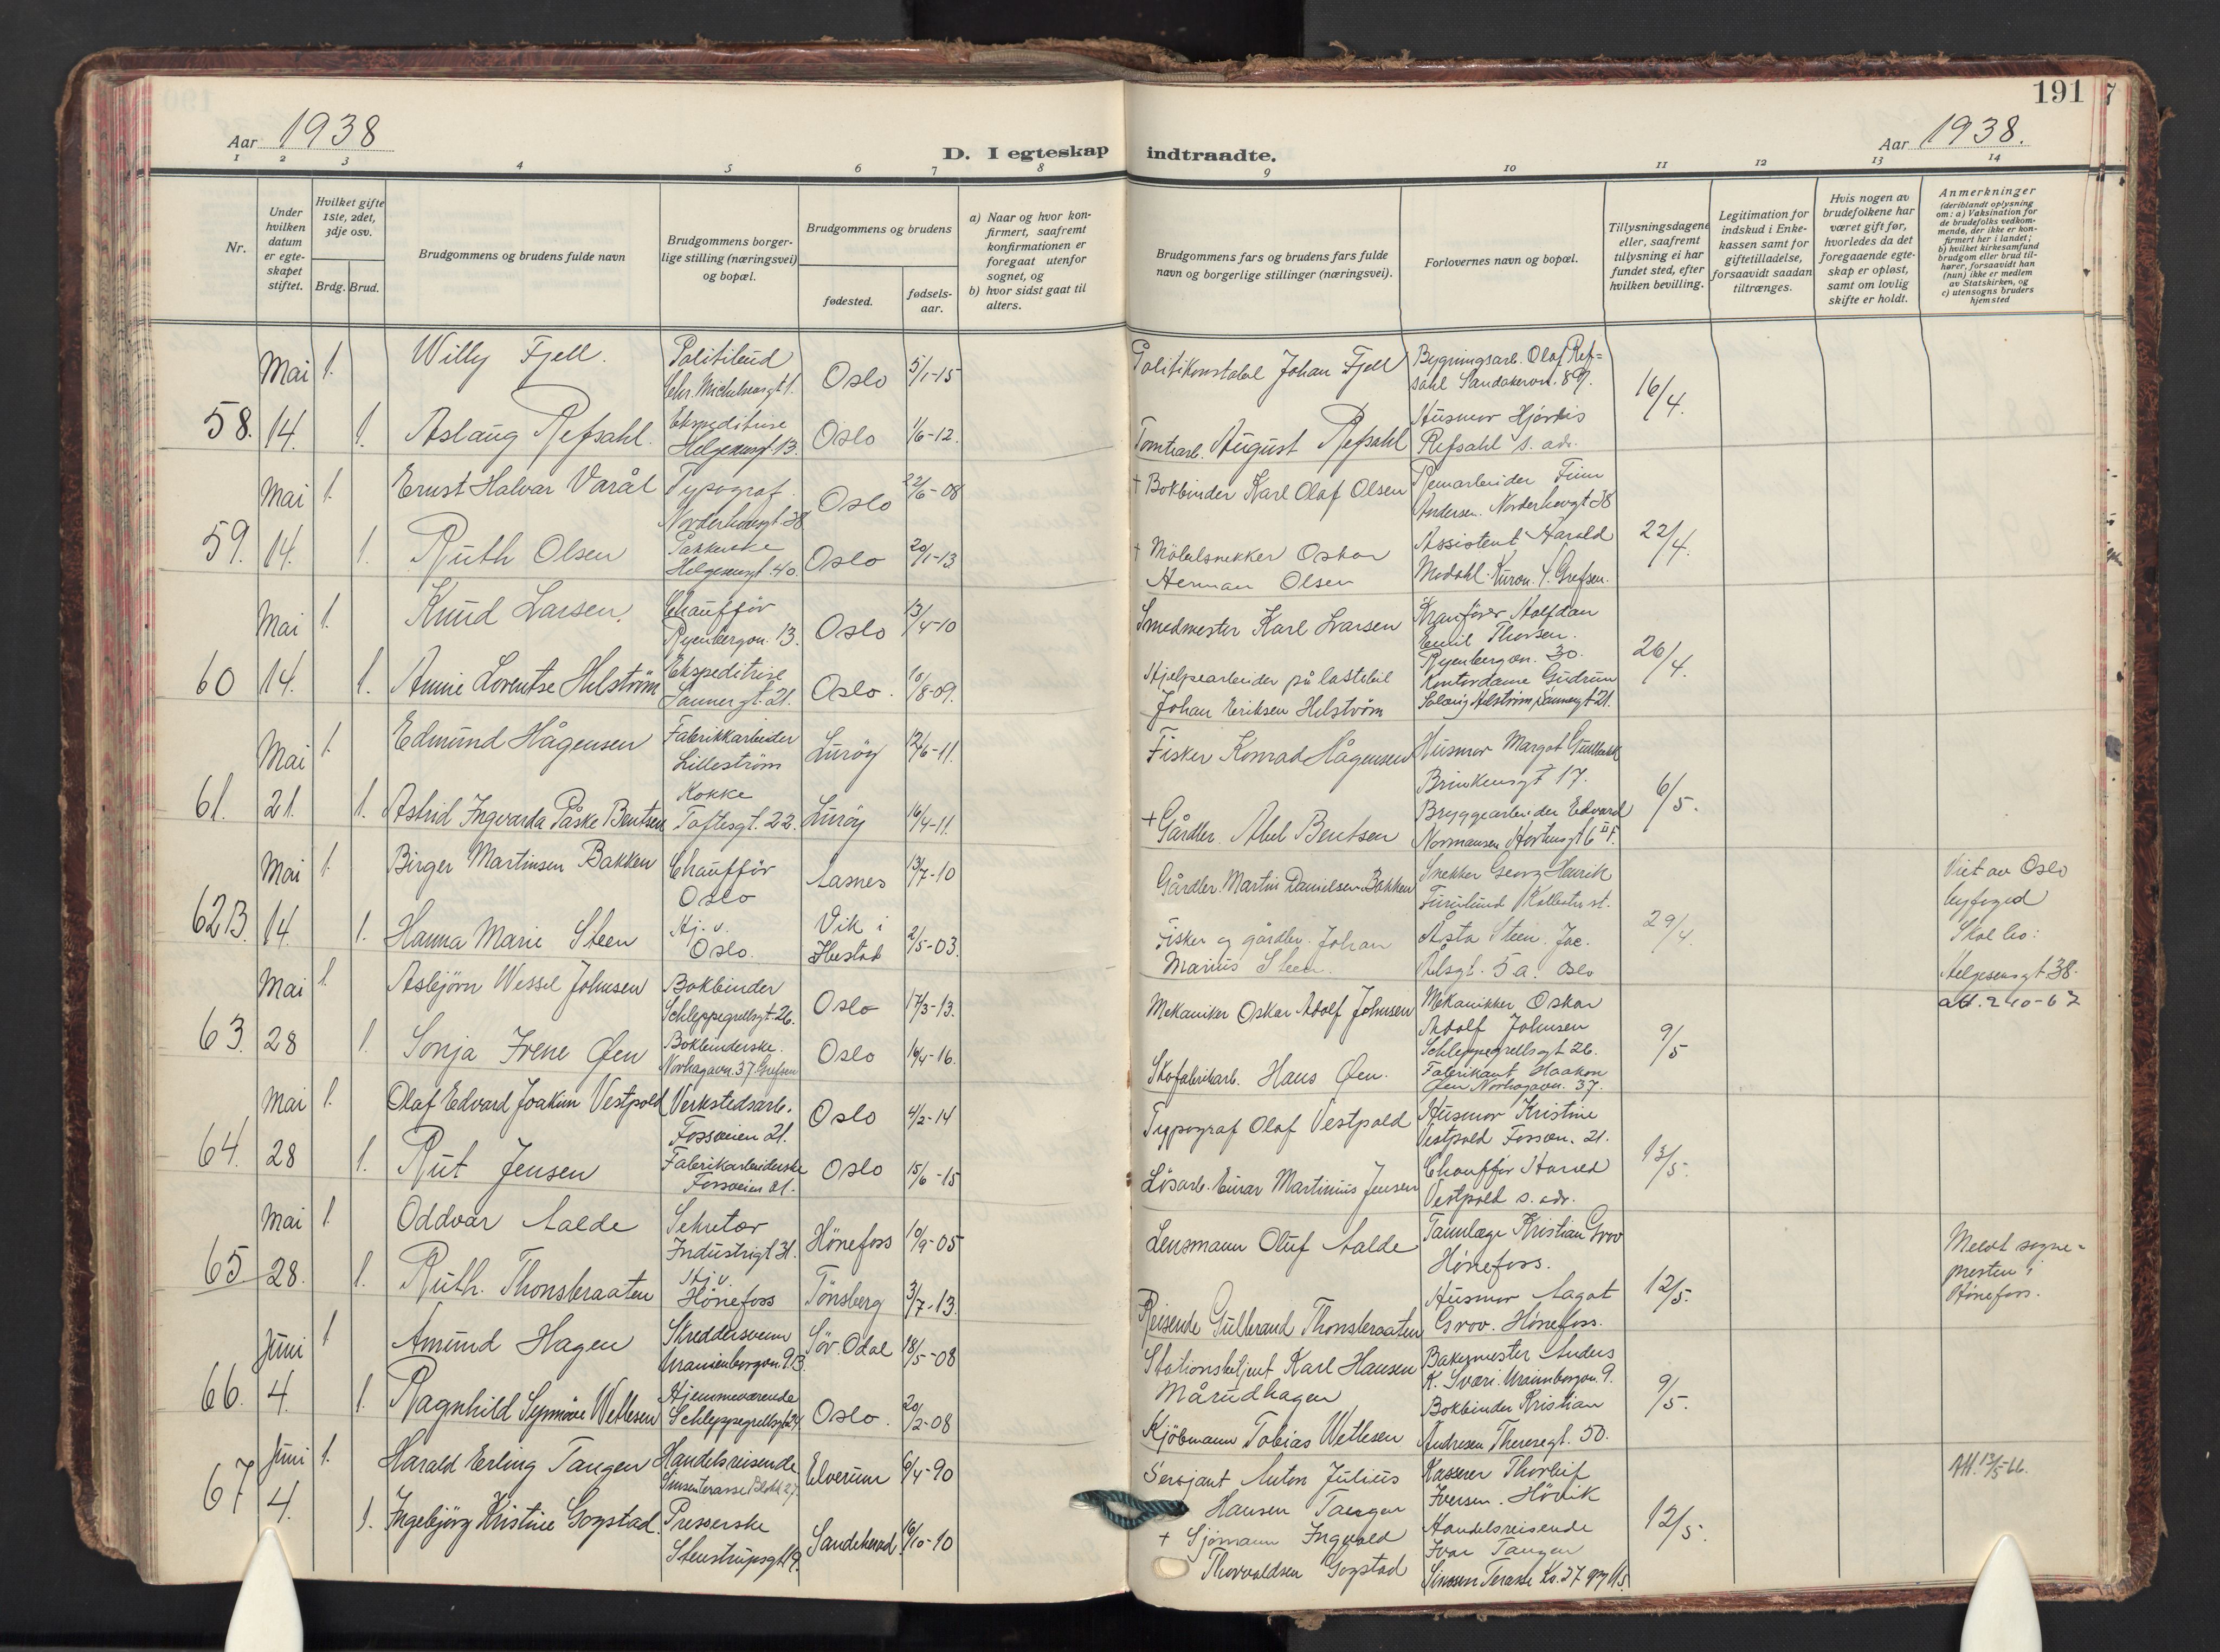 191
Aar 1938
Aar 1938.
D. I egteskap indtraadte.
1 2 3 4 5 6 7 8 9 10 11 12 13 14
Nr.
Under hvilken datum er egte-skapet stiftet.
Hvilket gifte 1ste, 2det, 3dje osv.
Brdg. Brud.
Brudgommens og brudens fulde navn
Brudgommens borger-lige stilling (næringsvei) og bopæl.
Brudgommens og brudens
fødested.
fødsels-aar.
a) Naar og hvor kon-firmert, saafremt konfirmationen er foregaat utenfor sognet, og
b) hvor sidst gaat til alters.
Brudgommens fars og brudens fars fulde navn og borgerlige stillinger (næringsvei).
Forlovernes navn og bopæl.
Tillysningsdagene eller, saafremt tillysning ei har fundet sted, efter hvilken bevilling.
Legitimation for indskud i Enke-kassen samt for giftetilladelse, forsaavidt saadan tiltrænges.
Hvis nogen av brudefolkene har været gift før, hvorledes da det foregaaende egte-skap er opløst, samt om lovlig skifte er holdt.
Anmerkninger (deriblandt oplysning om: a) Vaksination for de brudefolks vedkom-mende, der ikke er kon-firmert her i landet; b) hvilket kirkesamfund brudgom eller brud til-hører, forsaavidt han (hun) ikke er medlem av Statskirken, og c) utensogns bruders hjemsted
Mai 1. Willy Fjell. Chr. Michelsensgt 1. Oslo 5/1-15 Politikonstabel Johan Fjell Bygningsarb. Olaf Ref=sahl Sandakervn. 89. 16/4.
58. 14. 1. Aslaug Refsahl. Ekspeditrise Helgesensgt. 13. Oslo 1/6-12. Tomtearb. August Refsahl Husmor Hjördis Refsahl s. adr.
Mai 1. Ernst Halvar Varål Typograf Norderhovsgt. 38 Oslo 22/6-08 + Bokbinder Karl Olaf Olsen Finn Andersen. Norderhovgt 38 22/4.
59. 14. 1. Ruth Olsen Pakkerske Helgesensgt. 40. Oslo 20/1-13 + Möbelsnekker Oskar Herman Olsen Assistent Harald Grefsen.
Mai 1. Knud Larsen. Chaufför Ryenbergvn. 13. Oslo 13/4-10 Smedmester Karl Larsen Kranförer Halfdan Emil Thorsen. Ryenbergvn. 30. 26/4.
60 14. 1. Annie Lorentse Helström Ekspeditrise Sannergt. 21. Oslo. 10/8-09. Hjelpearbeider på lastebil Johan Eriksen Helström Kontordame Gudrun Solveig Helström, Sannergt 21.
Mai 1. Edmund Hågensen Fabrikkarbeider Lilleström Luröy 12/6-11. Fisker Konrad Hågensen Husmor Margot Brinkensgt 17. 6/5.
61. 21. 1. Astrid Ingvarda Påske Bentsen Kokke Toftesgt. 22. Luröy 16/4-11. + Gårdbr. Abel Bentsen Bryggearbeider Edvard Normansen
Mai 1. Birger Martinsen Bakken Chaufför Oslo Aasnes 13/7-10 Gårdbr. Martin Danielsen Bakken Snekker Georg Henrik Furulund 29/4. Viet av Oslo byfoged
62B. 14. 1. Hanna Marie Steen Hj. v. Oslo. Vik i 2/5-03. Fisker og gårdbr. Johan Marius Steen. Åsta Steen. Jac. Aalsgt. 5a. Oslo Skal bo: Helgesensgt 38.
Mai 1. Asbjörn Wessel Johnsen Bokbinder Schleppegrellsgt. 26. Oslo 17/3-13. Mekaniker Oskar Adolf Johnsen Mekaniker Oskar Adolf Johnsen Schleppegrellsgt 26. 9/5
63. 28 1. Sonja Irene Øen Bokbinderske. Norhagavn. 37 Grefsen Oslo 16/4-16. Skofabrikarb. Hans Øen. Fabrikant Haakon Øen Norhagavn. 37.
Mai 1. Olaf Edvard Joakim Vestpold Verkstedsarb. Fossveien 21. Oslo 4/2-14 Typograf Olaf Vestpold Husmor Kristine Vestpold Fossvn. 21. 13/5.
64. 28 1. Rut Jensen Fabrikarbeiderske Fossveien 21. Oslo 15/6-15 Lösarb. Einar Martinius Jensen Chauffør Harald Vestpold s. adr.
Mai 1. Oddvar Aalde Sekretær Industrigt 31. Hönefoss 10/9-05 Lensmann Oluf Aalde Tannlæge Kristian Grov Hönefoss. 12/5. Meldt sogne=presten i Hönefoss.
65 28. 1. Ruth. Thonsbraaten Hj. v. Hönefoss Tönsberg 3/7-13. Reisende Gulbrand Thonsbraaten Husmor Aagot Grov. Hönefoss.
Juni 1 Amund Hagen Skreddersvenn Uranienborgvn. 9B. Sör. Odal 18/5-08 Stationsbetjent Karl Hansen Mårudhagen Bakermester Anders K. Sveri. Uranienborgvn. 9. 9/5.
66. 4. 1. Ragnhild Synnöve Wetlesen Hjemmeværende Schleppegrellsgt 24. Oslo. 20/2-08 Kjöbmann Tobias Wetlesen Bokbinder Kristian Andresen Theresegt. 50.
Juni 1. Harald Erling Tangen Handelsreisende Sinsenterasse Blokk 27 Elverum 6/4-90 Sersjant Anton Julius Hansen Tangen Kasserer Thorleif Iversen. Hövik 12/5. Att. 13/5-66.
67 4. 1. Ingebjörg Kristine Gogstad. Presserske Stenstrupsgt 19. Sandeherad. 16/10-10 + Sjömann Ingvald Thorvaldsen Gogstad Handelsreisende Ivar Tangen